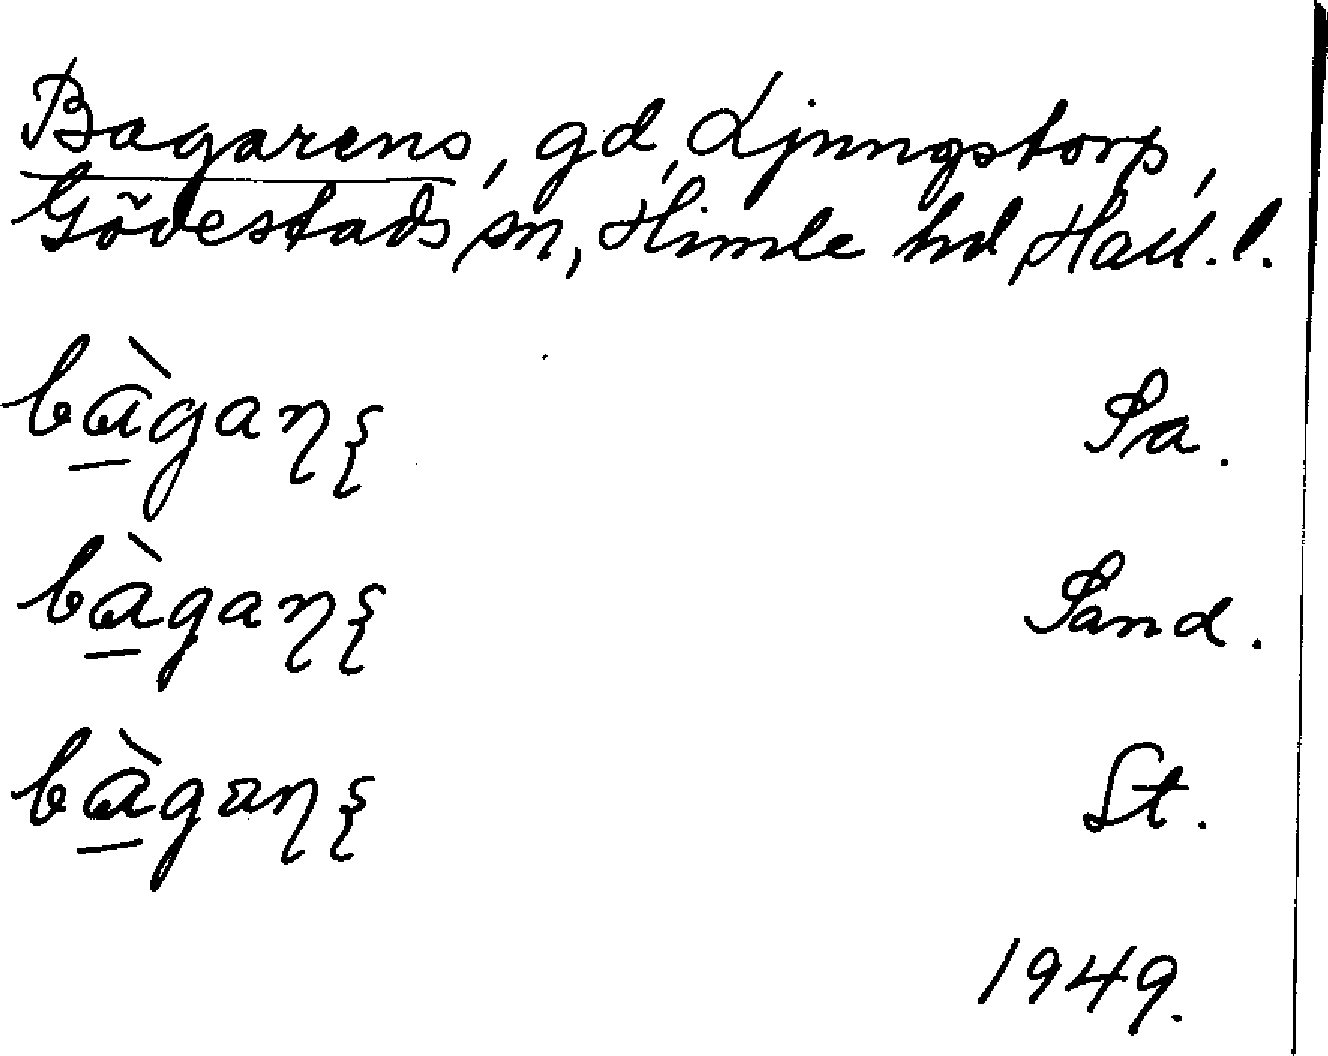 Bagarens, gd, Ljungstorp,
Gödestads sn, Himle hd, Hall. l.
bàgaɳʂ Sa.
bàgaɳʂ Sand.
bàgaɳʂ St.
1949.